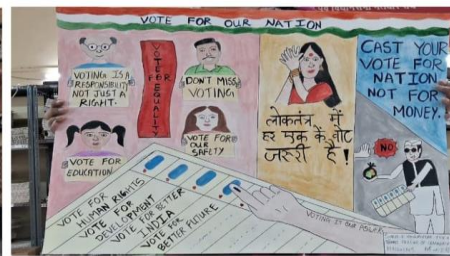 VOTE FOR OUR NATION
VOTING IS A
RESPONSIBILITY
NOT JUST A
RIGHT.
VOTE FOR EQUALITY
DON'T MISS
VOTING
VOTE FOR
EDUCATION
VOTE FOR
OUR
SAFETY
लोकतंत्र में
हर एक के वोट
जरुरी है!
CAST YOUR
VOTE FOR
NATION
NOT FOR
MONEY.
NO
VOTE FOR
HUMAN RIGHTS
VOTE FOR
DEVELOPMENT
VOTE FOR BETTER
INDIA
VOTE FOR
BETTER FUTURE
VOTING IS OUR